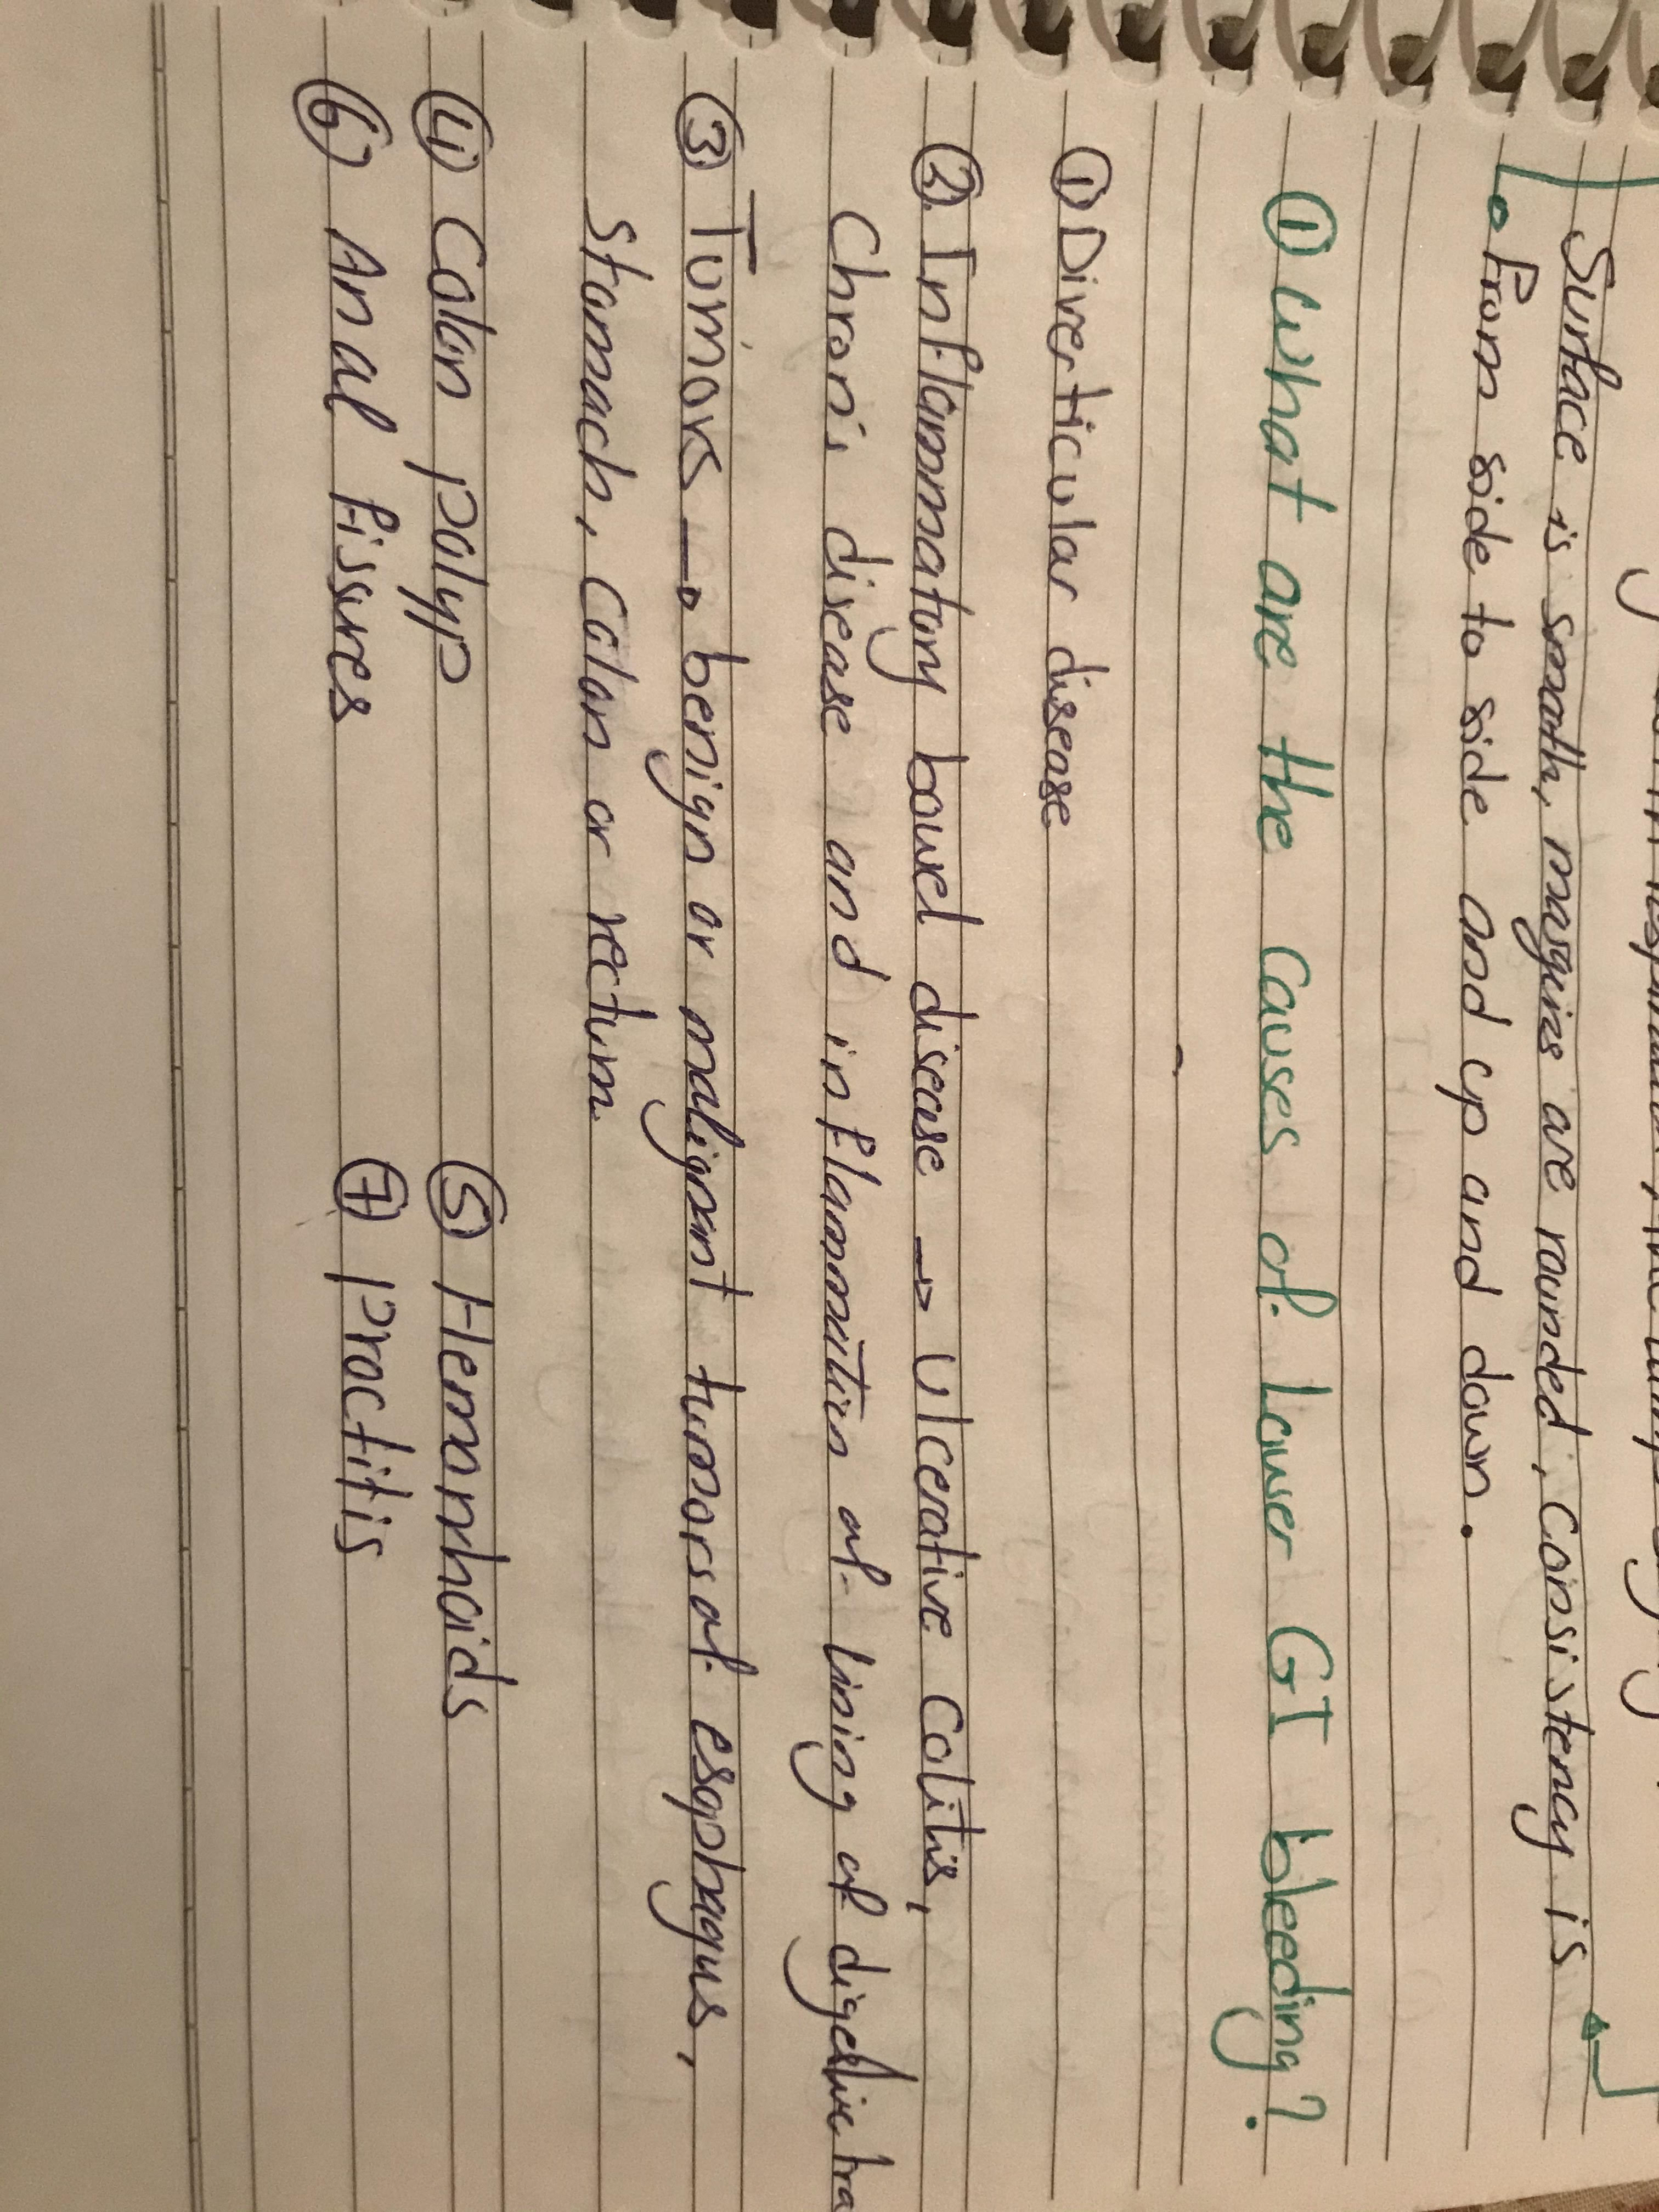 Surface is smooth, margins are rounded, Consistency is
From side to side and up and down.
① What are the causes of Lower GI bleeding?
① Diverticular disease
② Inflammatory bowel disease → Ulcerative Colitis,
Chron's disease and inflammation of lining of digestive tra
③ Tumors → benign or malignant tumors of esophagus,
Stomach, Colon or rectum.
④ Colon polyp ⑤ Hemorrhoids
⑥ Anal fissures ⑦ Proctitis